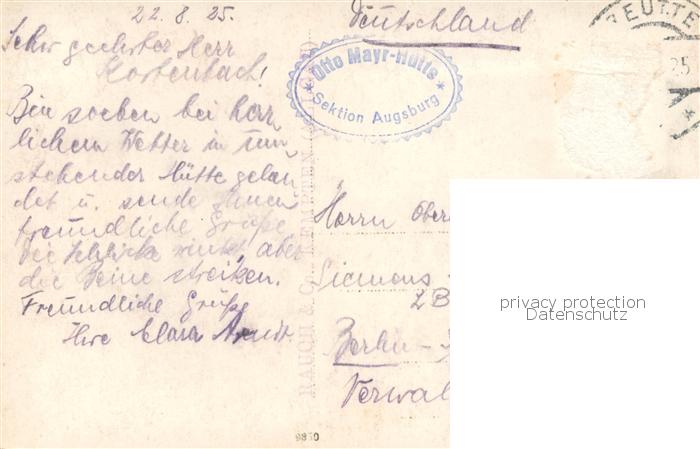 22.8.25.
Sehr geehrter Herr
Kortenbach!
Bin soeben bei herr
lichem Wetter in um
stehender Hütte gelan
det u. sende Ihnen
freundliche Grüße
Die winkt, aber
die Beine streiken.
Freundliche Grüße
Ihre Clara Arndt
Deutschland
Otto Mayr-Hütte
Sektion Augsburg
REUTTE
25
Herrn Ober
Siemens
Berlin-
Verwal
RAUCH & C KEMPTEN
9830
privacy protection
Datenschutz